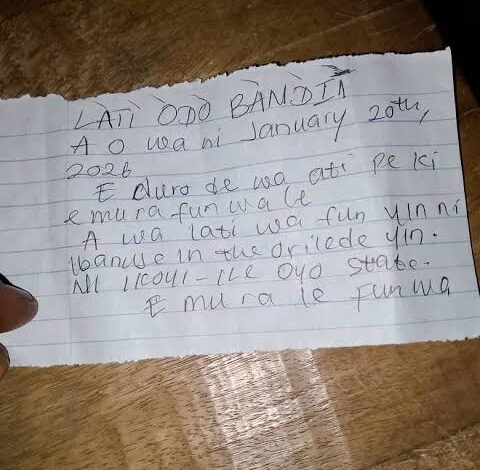 LATI ODO BANDIT
A O wa ni January 20th,
2026
E duro de wa ati pe ki
e mura fun wa le
A wa lati wa fun yin ni
Ibanuse in the orilede yin.
NI IKOYI-ILE OYO state.
E mu ra le fun wa